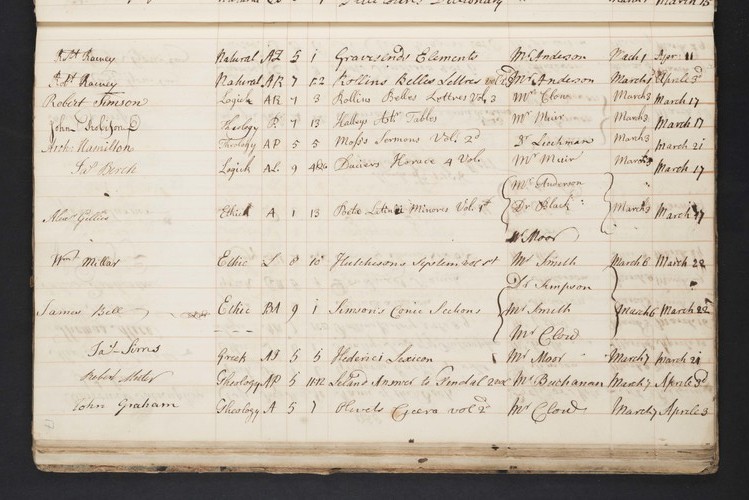 Dictionary March 15
Rot Rainey Natural AI 5 1 Gravesends Elements Mr Anderson March 1 Apr. 11
Rot Rainey Natural AR 7 Rollins Belles Lettres vol Mr Anderson March 1 Aprile 3d
Robert Simson Logick AR 7 3 Rollins Belles Lettres Vol. 3 Mr Clow March 3 March 17
John Robison Theology 7 13 Halleys Tables Mr Muir March 3 March 17
Arch. Hamilton Theology AP 5 5 Moss's Sermons Vol. 2d Dr Leechman March 3 March 21
Jas Berch Logick AL 9 Daciers Horace 4 Vol. Mr Muir March 3 March 17
Mr Anderson
Alexr Gillies Ethick A 1 13 Poetæ Latini Minores Vol. 1st Dr Black March 3 March 17
Mr Moor
Wm Millar Ethic 8 10 Hutcheson's System vol 1st Mr Smith March 6 March 22
Dr Simpson
James Bell Ethic BA 9 1 Simson's Conic Sections Mr Smith March 6 March 22
Mr Clow
Jas Sims Greek 5 5 Hederici Lexicon Mr Moor March 7 March 21
Robert Theology AP 5 Leland Answer to Tindal 2 vol Mr Buchanan March 7 Aprile 3d
John Graham Theology A 5 7 Olivets Cicero vol 2d Mr Clow March 7 Aprile 3